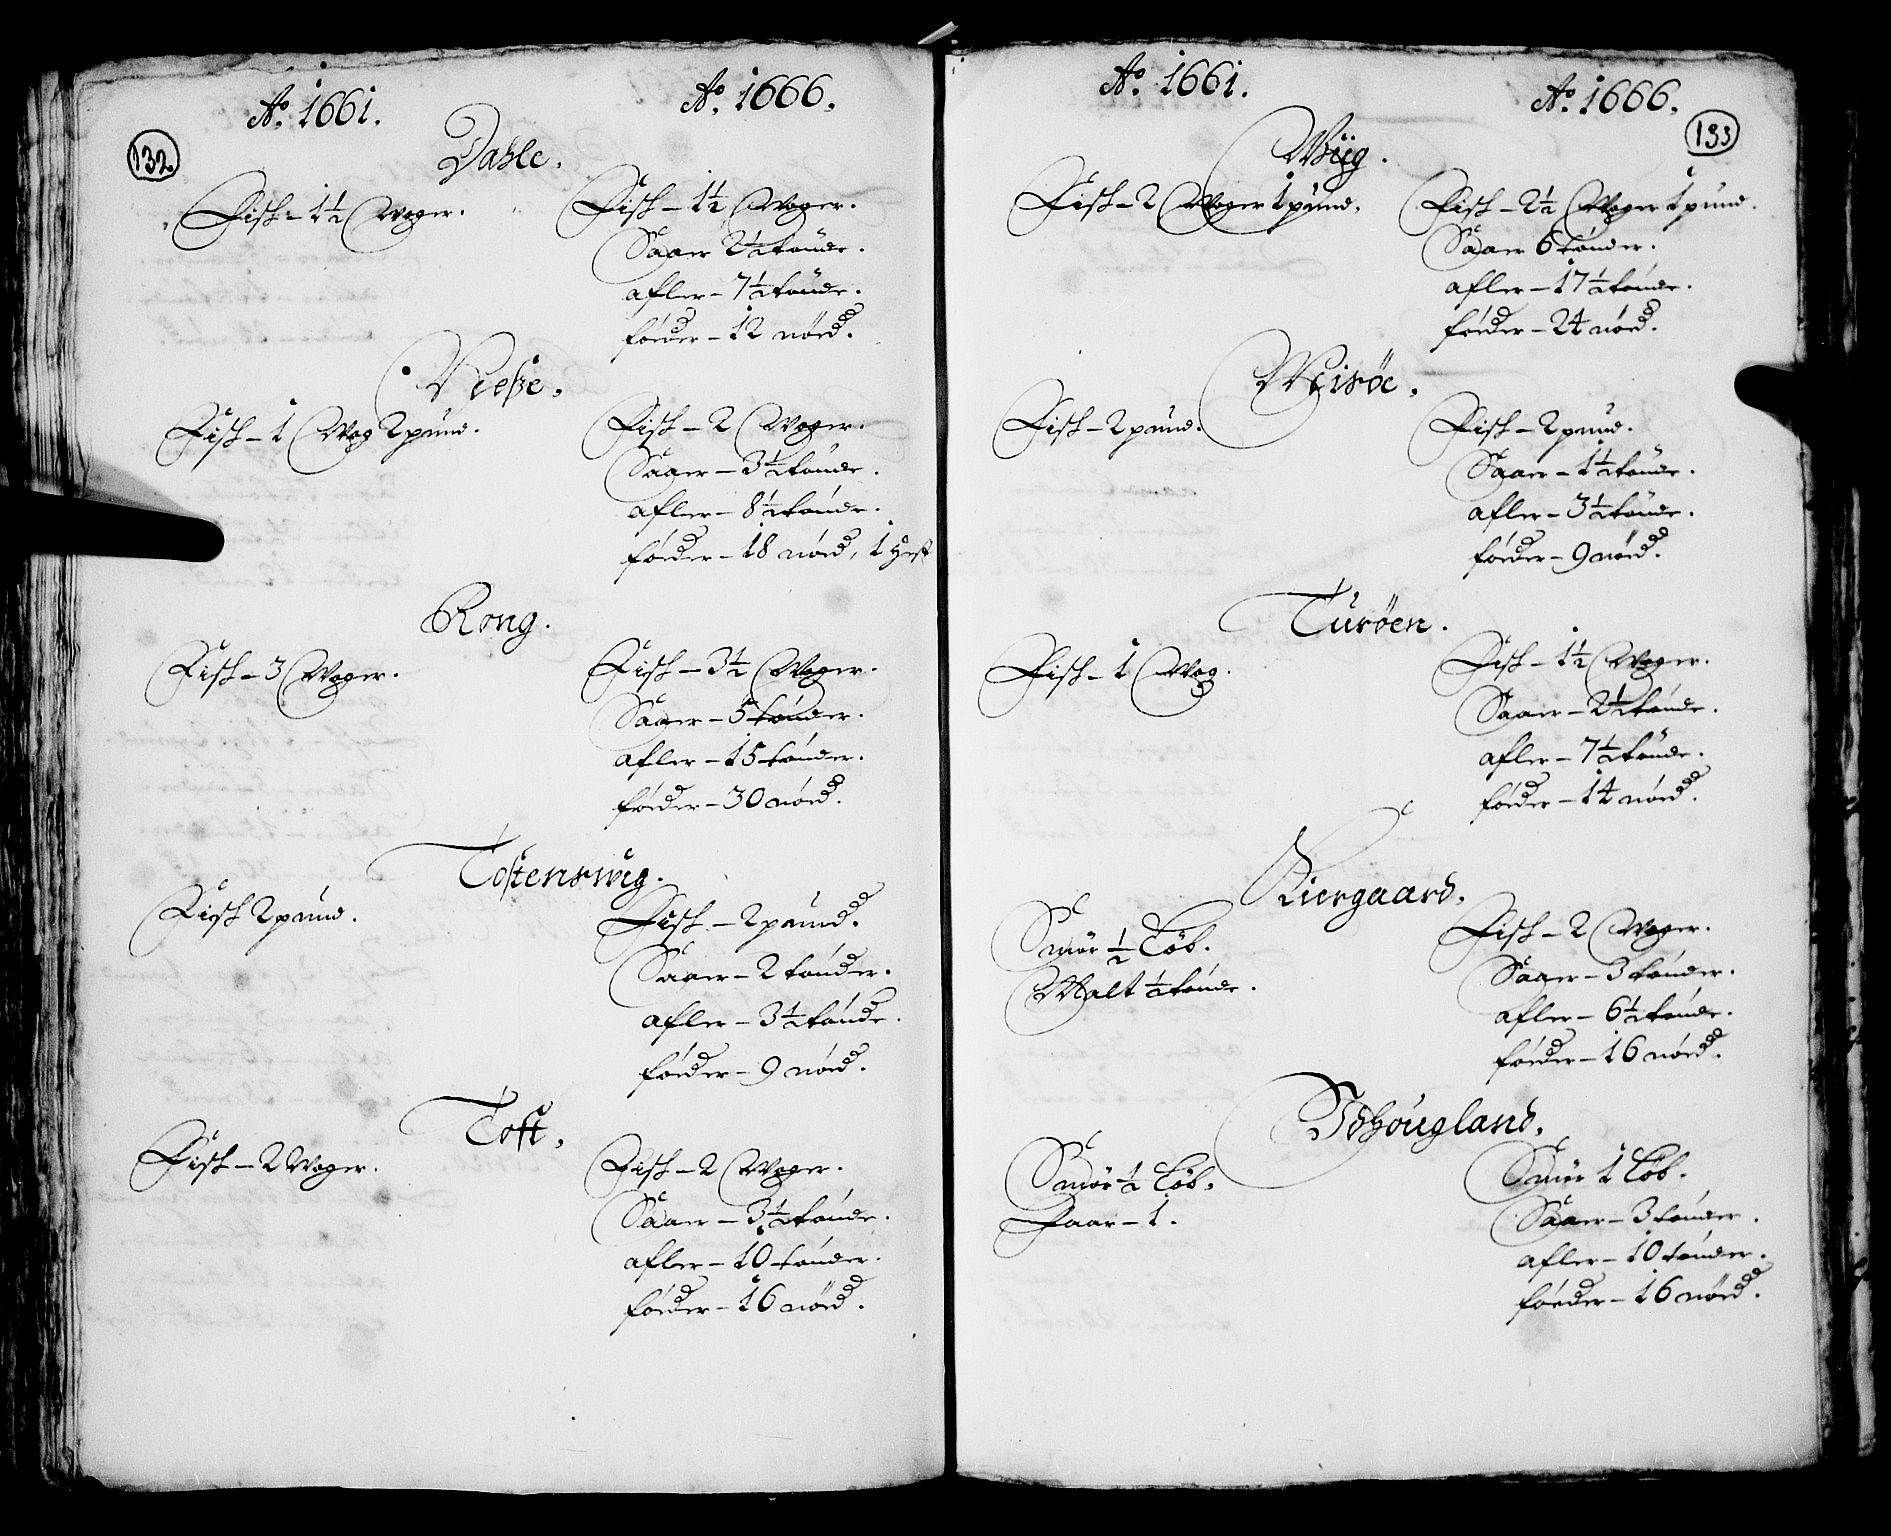 132.
Ao. 1661.
Ao. 1666.
Dahle.
Fisk - 1½ Woger.
Fisk - 1½ Woger.
Saaer 2½ tønde.
afler - 7½ tønde.
føeder - 12 nød.
Fisk - 1 Wog 2 pund.
Fisk - 2 Woger.
Saaer - 3½ tønde.
afler - 8½ tønde.
føeder - 18 nød, 1 Hest
Rong.
Fisk - 3 Woger.
Fisk - 3½ Woger.
Saaer - 5 tønder.
afler - 15 tønder.
føeder - 30 nød.
Tostenswiig.
Fisk 2 pund.
Fisk - 2 pund.
Saaer - 2 tønder.
afler - 3½ tønde.
føeder - 9 nød.
Toft.
Fisk - 2 Woger.
Fisk - 2 Woger.
Saaer - 3½ tønde.
afler - 10 tønder.
føeder - 16 nød.
133
Ao. 1661.
Ao. 1666.
Wiig.
Fisk - 2 Woger 1 pund.
Fisk - 2½ Woger 1 pund.
Saaer 6 tønder.
afler - 17½ tønde.
føeder - 24 nød.
Misøe.
Fisk - 2 pund.
Fisk - 2 pund.
Saaer - 1½ tønde.
afler - 3½ tønde.
føeder - 9 nød.
Turøen.
Fisk - 1 Wog.
Fisk - 1½ Woger.
Saaer - 2½ tønde.
afler - 7½ tønde.
føeder - 14 nød.
Kiergaard.
Smør ½ Løb.
Malt ½ tønde.
Fisk - 2 Woger.
Saaer - 3 tønder.
afler - 6½ tønde.
føeder - 16 nød.
Schougland.
Smør ½ Løb.
Faar - 1.
Smør 1 Løb.
Saaer - 3 tønder.
afler - 10 tønder.
føeder - 16 nød.